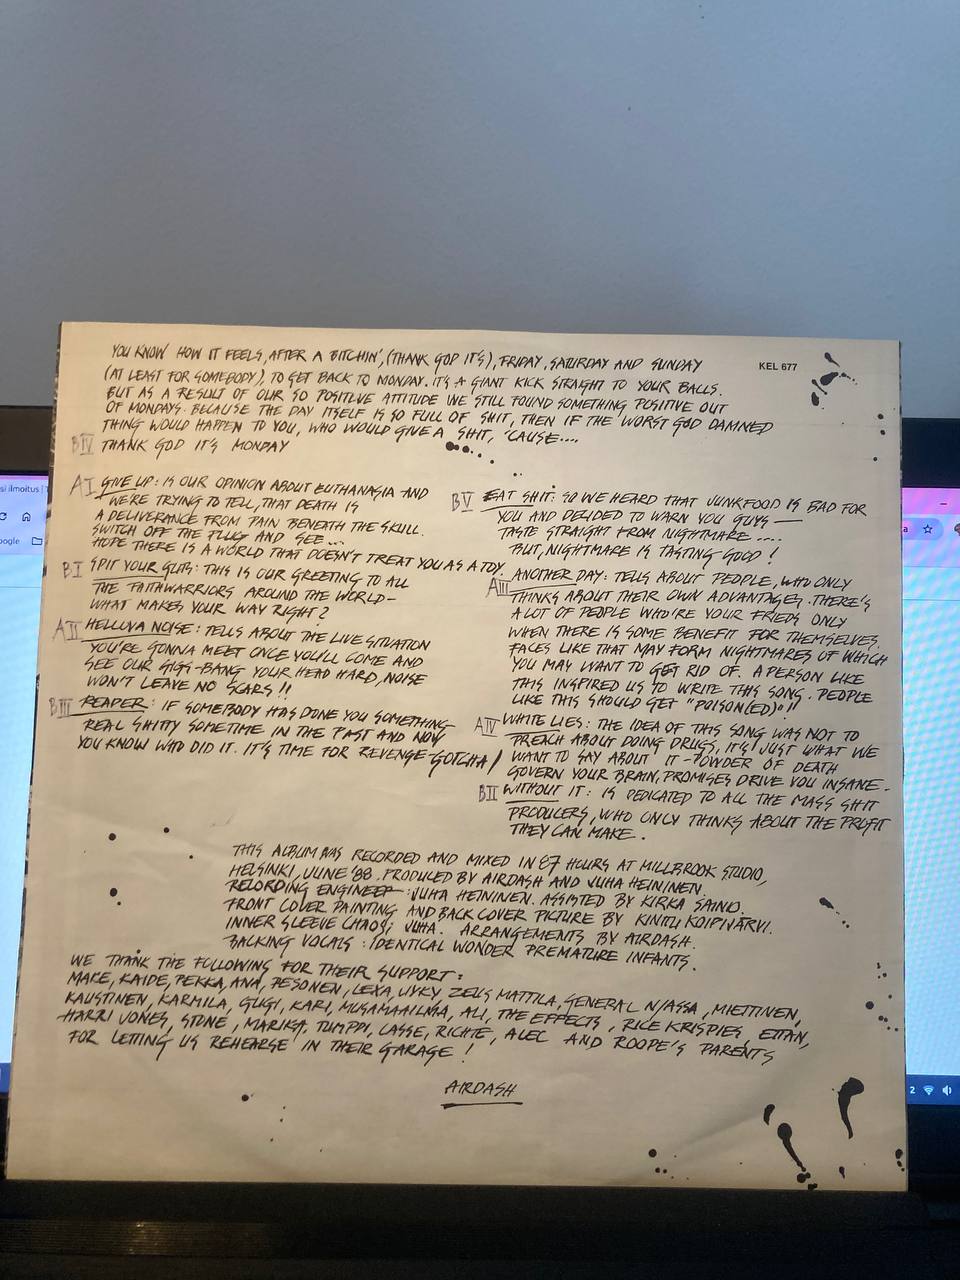 YOU KNOW HOW IT FEELS, AFTER A BITCHIN', (THANK GOD IT'S), FRIDAY, SATURDAY AND SUNDAY
(AT LEAST FOR SOMEBODY), TO GET BACK TO MONDAY. IT'S A GIANT KICK STRAIGHT TO YOUR BALLS.
BUT AS A RESULT OF OUR SO POSITIVE ATTITUDE WE STILL FOUND SOMETHING POSITIVE OUT
OF MONDAYS. BECAUSE THE DAY ITSELF IS SO FULL OF SHIT, THEN IF THE WORST GOD DAMNED
THING WOULD HAPPEN TO YOU, WHO WOULD GIVE A SHIT, 'CAUSE....
BIV THANK GOD IT'S MONDAY
KEL 677
AI GIVE UP: IS OUR OPINION ABOUT EUTHANASIA AND
WE'RE TRYING TO TELL, THAT DEATH IS
A DELIVERANCE FROM PAIN BENEATH THE SKULL.
SWITCH OFF THE PLUG AND SEE...
HOPE THERE IS A WORLD THAT DOESN'T TREAT YOU AS A TOY.
BI SPIT YOUR GUTS: THIS IS OUR GREETING TO ALL
THE FAITHWARRIORS AROUND THE WORLD-
WHAT MAKES YOUR WAY RIGHT?
AII HELLUVA NOISE: TELLS ABOUT THE LIVE SITUATION
YOU'RE GONNA MEET ONCE YOU'LL COME AND
SEE OUR GIGS-BANG YOUR HEAD HARD, NOISE
WON'T LEAVE NO SCARS!!
BIII REAPER: IF SOMEBODY HAS DONE YOU SOMETHING
REAL SHITTY SOMETIME IN THE PAST AND NOW
YOU KNOW WHO DID IT. IT'S TIME FOR REVENGE-GOTCHA!
BV EAT SHIT: SO WE HEARD THAT JUNKFOOD IS BAD FOR
YOU AND DECIDED TO WARN YOU GUYS —
TASTE STRAIGHT FROM NIGHTMARE....
BUT, NIGHTMARE IS TASTING GOOD!
AIII ANOTHER DAY: TELLS ABOUT PEOPLE, WHO ONLY
THINKS ABOUT THEIR OWN ADVANTAGES. THERE'S
A LOT OF PEOPLE WHO'RE YOUR FRIEDS ONLY
WHEN THERE IS SOME BENEFIT FOR THEMSELVES.
FACES LIKE THAT MAY FORM NIGHTMARES OF WHICH
YOU MAY WANT TO GET RID OF. A PERSON LIKE
THIS INSPIRED US TO WRITE THIS SONG. PEOPLE
LIKE THIS SHOULD GET "POISON(ED)"!!
AIV WHITE LIES: THE IDEA OF THIS SONG WAS NOT TO
PREACH ABOUT DOING DRUGS, IT'S JUST WHAT WE
WANT TO SAY ABOUT IT - POWDER OF DEATH
GOVERN YOUR BRAIN, PROMISES DRIVE YOU INSANE.
BII WITHOUT IT: IS DEDICATED TO ALL THE MASS SHIT
PRODUCERS, WHO ONLY THINKS ABOUT THE PROFIT
THEY CAN MAKE.
THIS ALBUM WAS RECORDED AND MIXED IN 87 HOURS AT MILLBROOK STUDIO,
HELSINKI, JUNE '88. PRODUCED BY AIRDASH AND JUHA HEININEN.
RECORDING ENGINEER: JUHA HEININEN. ASSISTED BY KIRKA SAINIO.
FRONT COVER PAINTING AND BACK COVER PICTURE BY KINTTU KOIPIJÄRVI.
INNER SLEEVE CHAOS; JUHA. ARRANGEMENTS BY AIRDASH.
BACKING VOCALS: IDENTICAL WONDER PREMATURE INFANTS.
WE THANK THE FOLLOWING FOR THEIR SUPPORT:
MAKE, KAIDE, PEKKA, ANA, PESONEN, LEXA, JYKY ZEUS MATTILA, GENERAL NJASSA, MIETTINEN,
KAUSTINEN, KARMILA, GUGI, KARI, MUSAMAAILMA, ALI, THE EFFECTS, RICE KRISPIES, EITAN,
HARRI JONES, STONE, MARIKA, TUMPPI, LASSE, RICHIE, ALEC AND ROOPE'S PARENTS
FOR LETTING US REHEARSE IN THEIR GARAGE!
AIRDASH